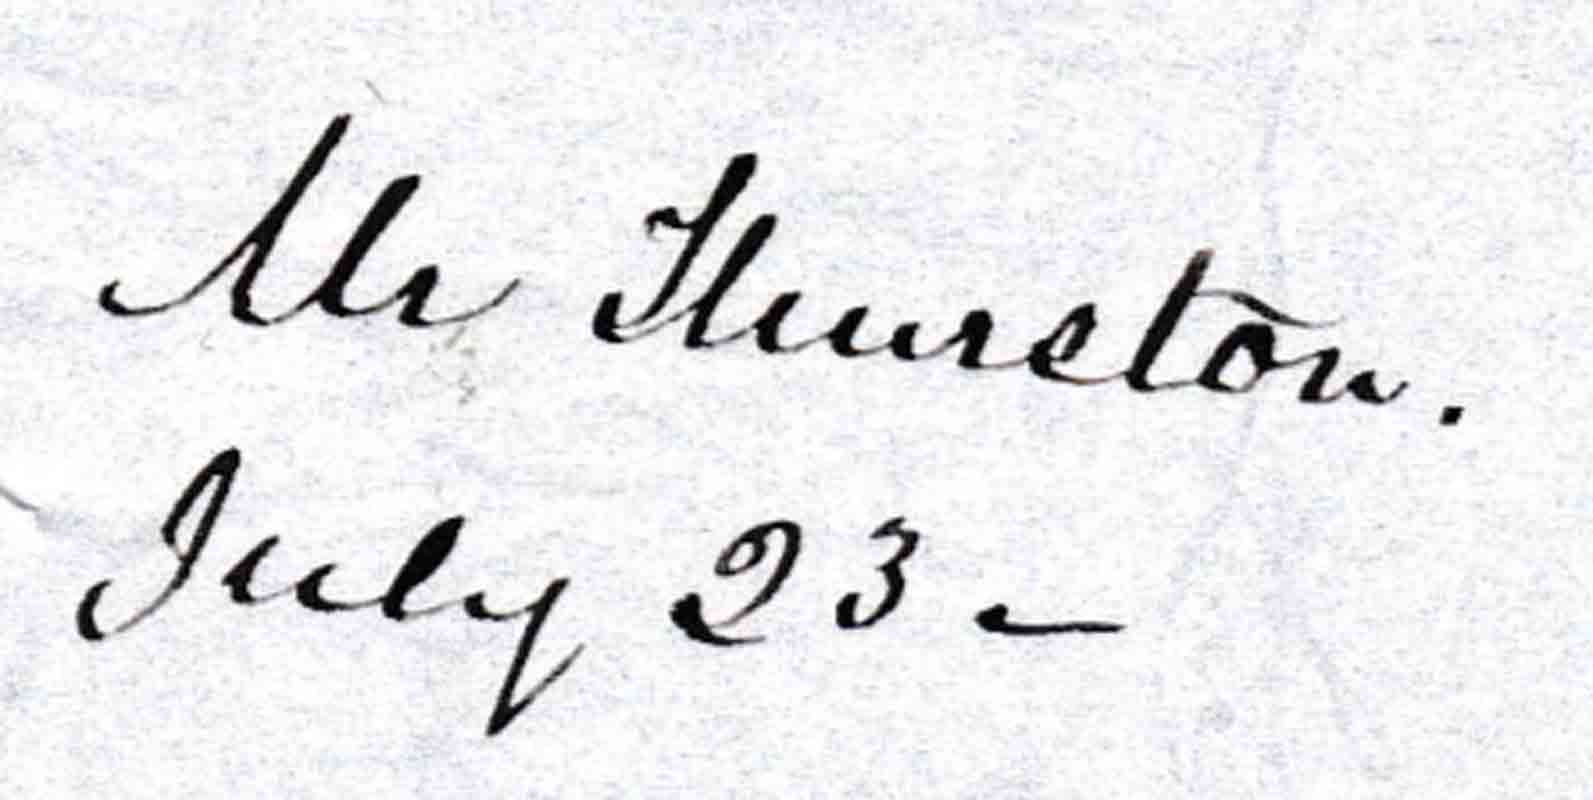 Mr Thurston.
July 23 –